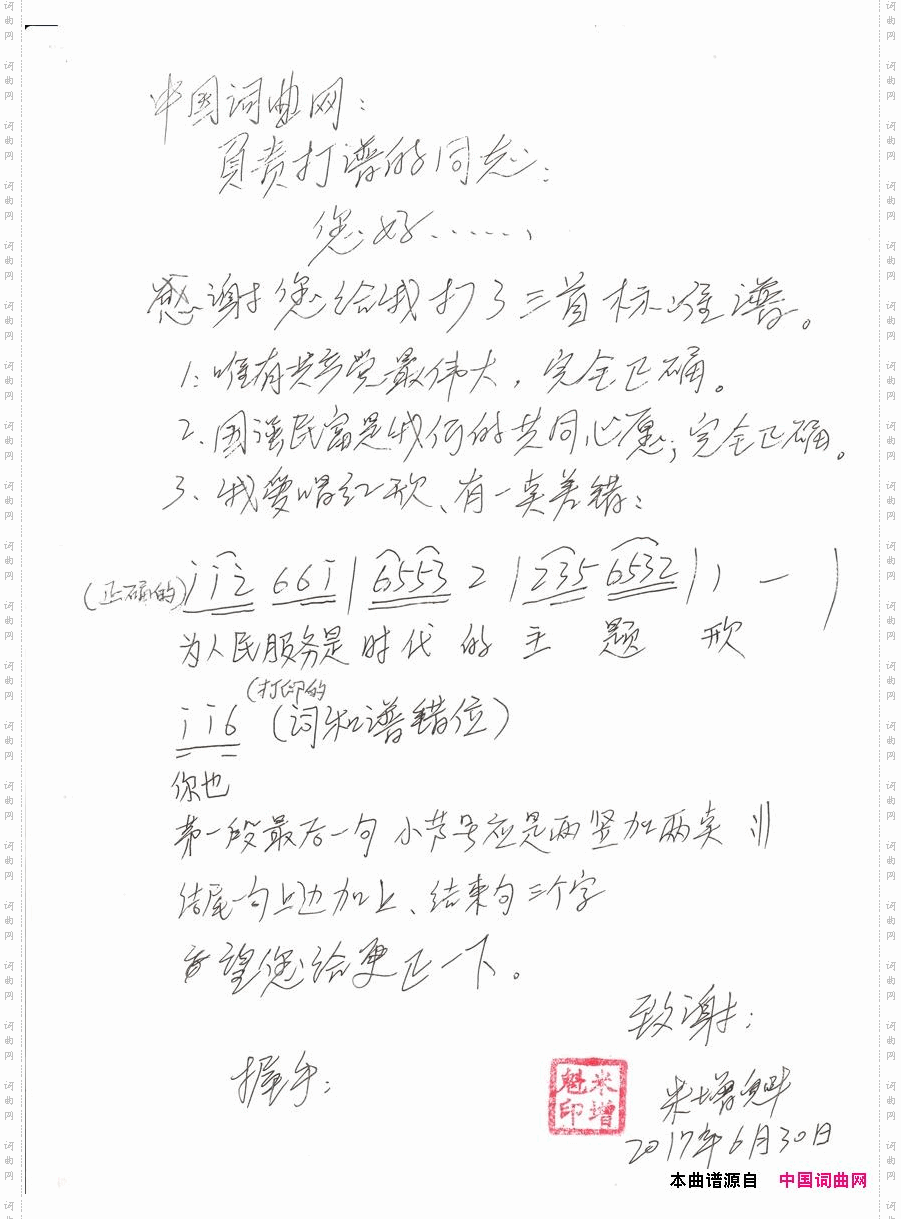 中国词曲网：
負责打谱的同志：
您好……，
感谢您给我打了三首标准谱。
1：唯有共产党最伟大，完全正确。
2、国强民富是我们的共同心愿；完全正确。
3、我爱唱红歌、有一点差错：
(正确的) i i 2 6 6 i | 6553 2 | 235 6532 | 1 — |
为人民服务是时代的主题歌
(打印的
i i 6 (词和谱错位)
你也
第一段最后一句小节号应是两竖加两点 :||
结尾句上边加上、结束句三个字
希望您给更正一下。
致谢：
握手：
米增魁印
米增魁
2017年6月30日
本曲谱源自 中国词曲网